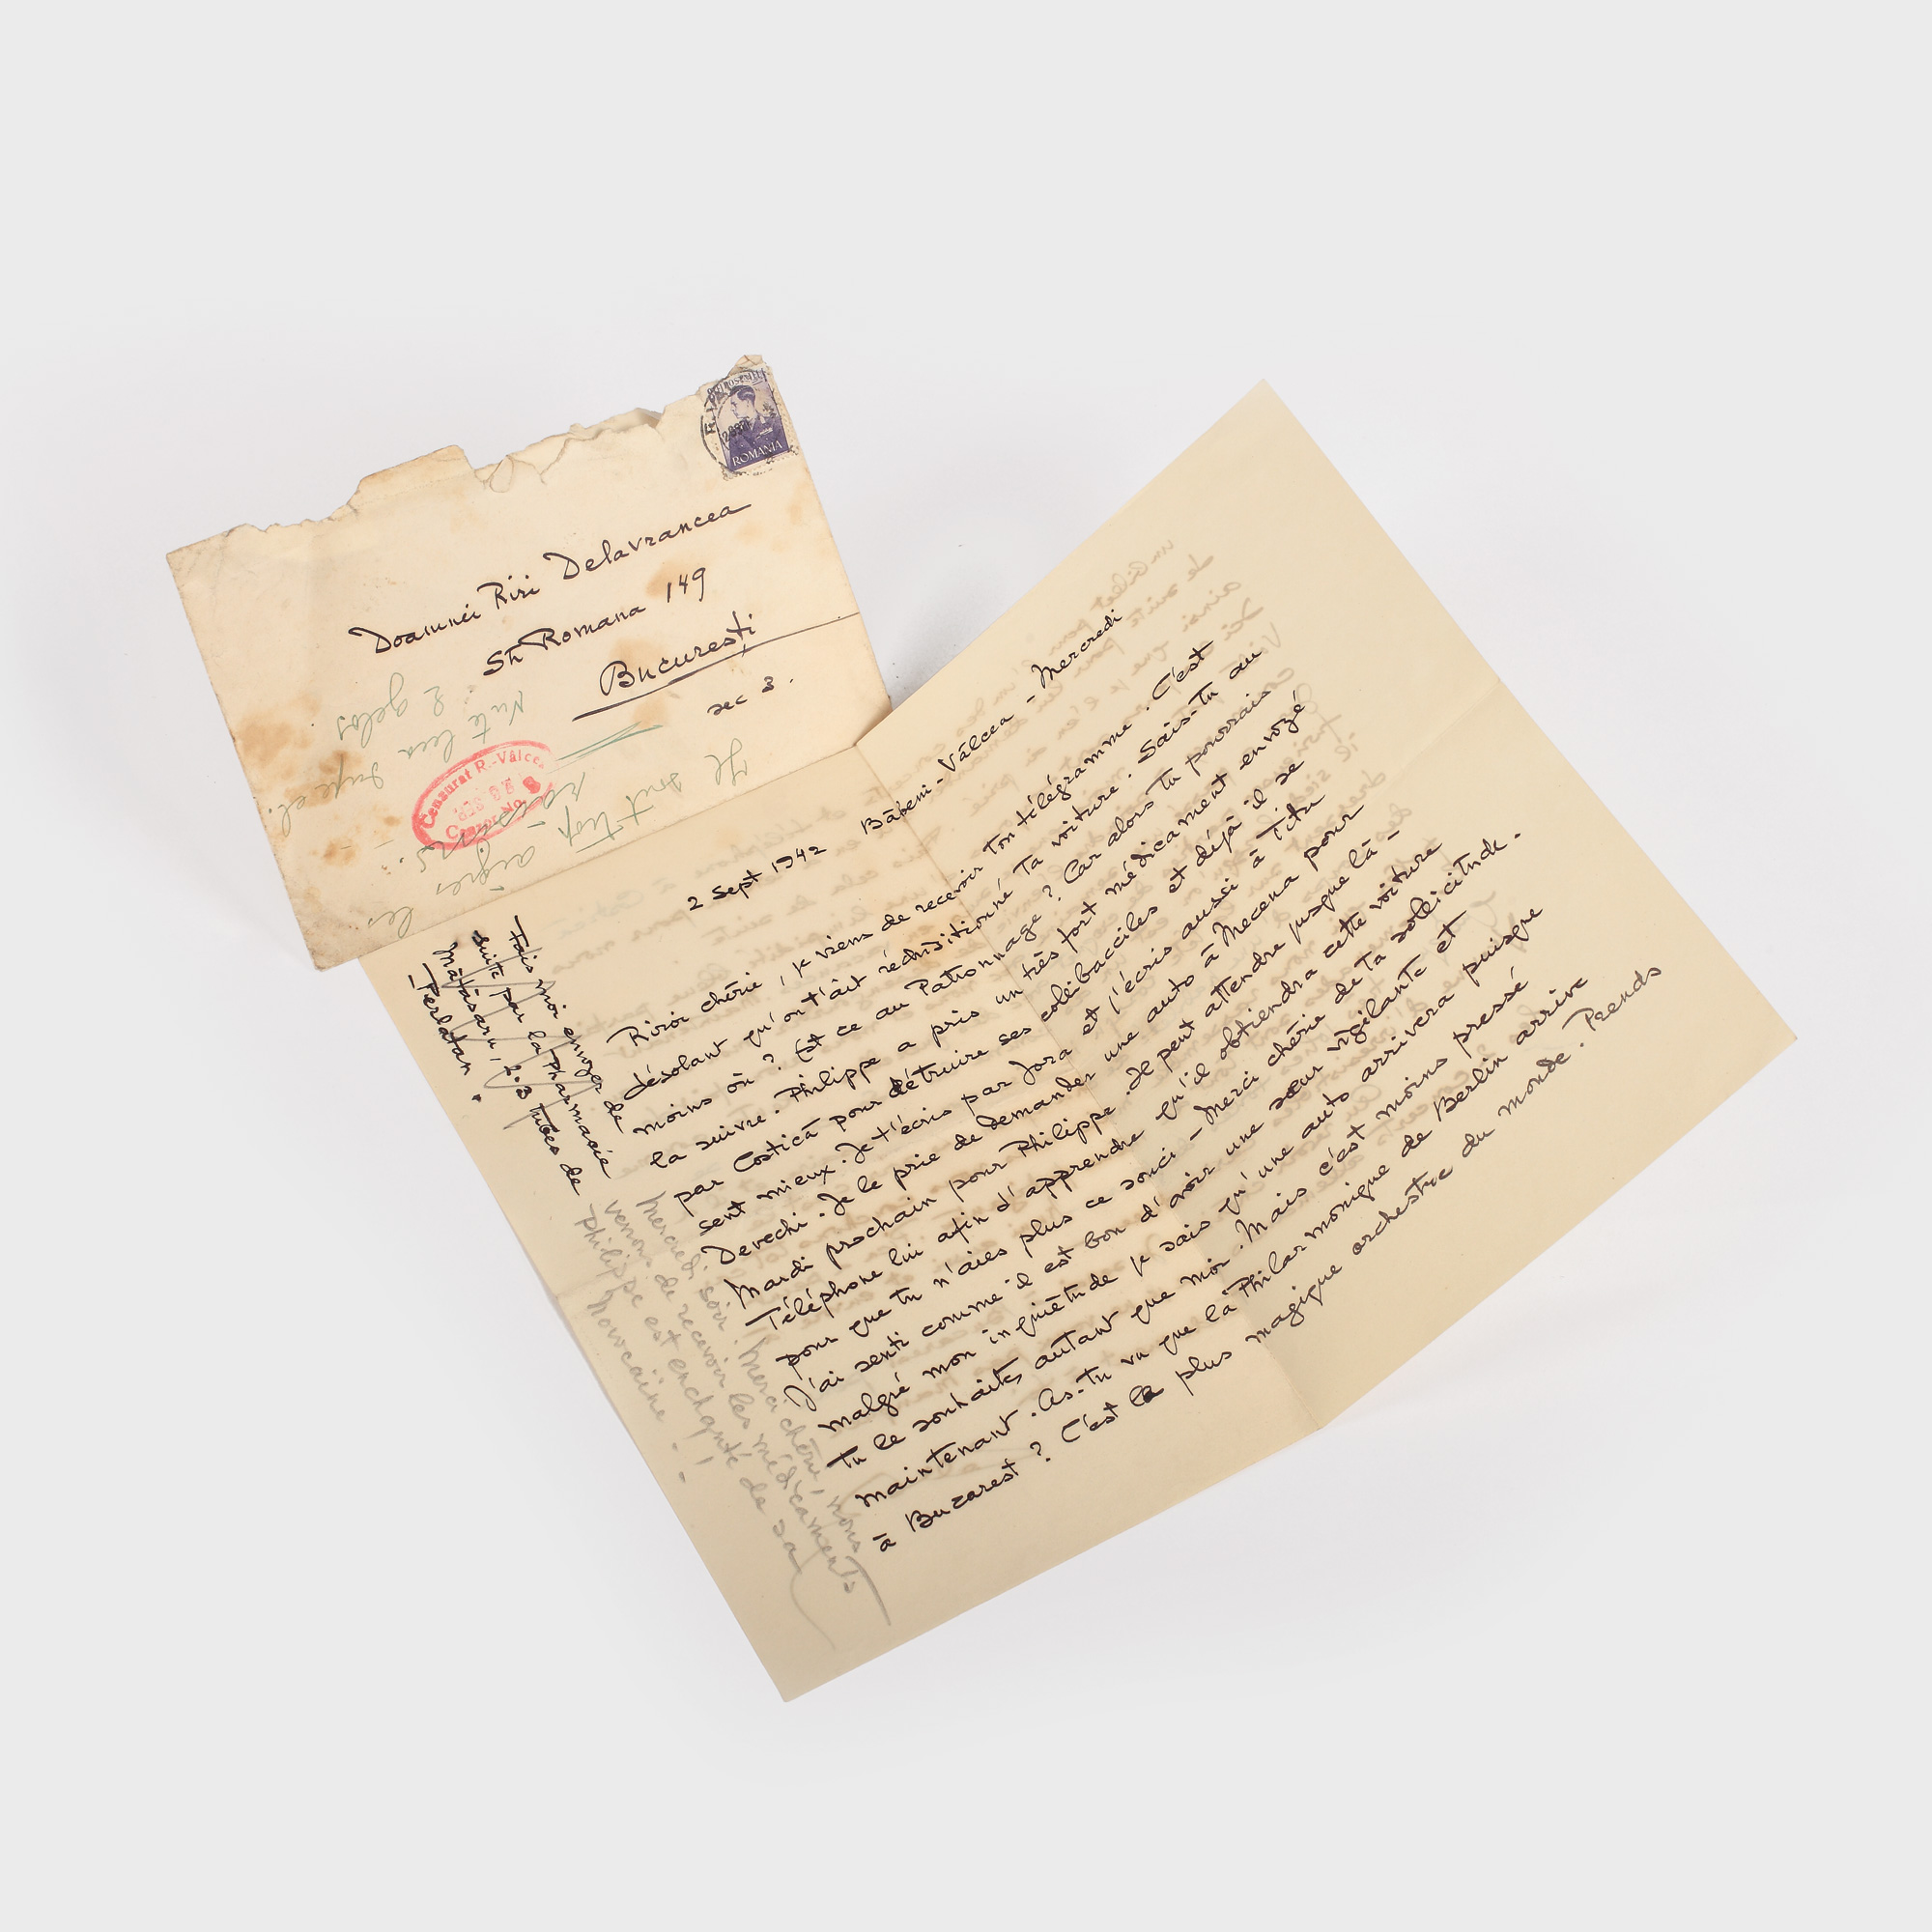 ROMANIA
Doamnei Riri Delavrancea
Str Romana 149
București
sec 3.
Censurat R.-Vâlcea
Cenzor No. 8
Nu te
e gelos
Il sont trop
aigres les
2 Sept 1942 Băbeni-Vâlcea - Mercredi
Riroi chérie, je viens de recevoir ton télégramme. C'est
désolant qu'on t'ait réquisitionné ta voiture. Sais-tu au
moins où ? Est ce au Patronnage ? Car alors tu pourrais
la suivre. Philippe a pris un très fort médicament envoyé
par Costică pour détruire ses colibacciles et déjà il se
sent mieux. Je t'écris par Jora et j'écris aussi à Titu
Devechi. Je le prie de demander une auto à Mecena pour
Mardi prochain pour Philippe. Il peut attendre jusque là -
Téléphone lui afin d'apprendre qu'il obtiendra cette voiture
pour que tu n'aies plus ce souci - Merci chérie de ta sollicitude.
J'ai senti comme il est bon d'avoir une sœur vigilante et
malgré mon inquiètude je sais qu'une auto arrivera puisque
tu le souhaites autant que moi. Mais c'est moins pressé
maintenant. As-tu vu que la Philarmonique de Berlin arrive
à Bucarest ? C'est le plus magique orchestre du monde. Prends
Fais moi envoyer de
suite par la Pharmacie
Mătăsaru, 2-3 tubes de
Perlatan.
Mercredi soir. Merci chérie, nous
venons de recevoir les médicaments
Philippe est enchanté de sa
Novocaïne !